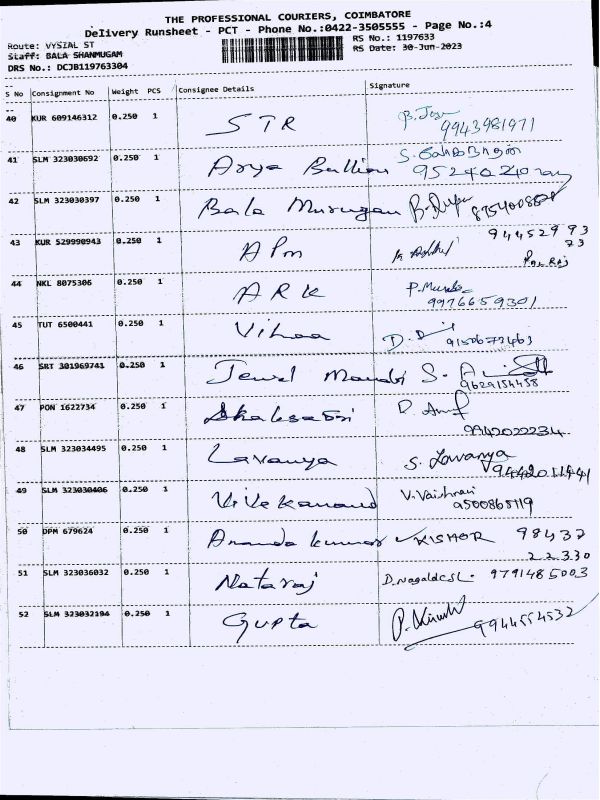 THE PROFESSIONAL COURIERS, COIMBATORE
Delivery Runsheet - PCT - Phone No.:0422-3505555 - Page No.:4
Route: VYSIAL ST
RS No.: 1197633
Staff: BALA SHANMUGAM
RS Date: 30-Jun-2023
DRS No.: DCJB119763304
S No Consignment No Weight PCS Consignee Details Signature
40 KUR 609146312 0.250 1 STR
9943981971
41 SLM 323030692 0.250 1 Arya Bullion
42 SLM 323030397 0.250 1 Bala Murugan
43 KUR 529990943 0.250 1 APM 9445299373
44 NKL 8075306 0.250 1 ARK
9976659301
45 TUT 6500441 0.250 1
46 SRT 301969741 0.250 1 Jewel
9629154458
47 PON 1622734 0.250 1
9942022234
48 SLM 323034495 0.250 1 Lavanya S. Lavanya
49 SLM 323030406 0.250 1 Vivekanand V. Vaishnavi
9500865119
50 DPM 679624 0.250 1 Ananda kumar KISHOR 98432
22330
51 SLM 323036032 0.250 1 Nataraj 9791485003
52 SLM 323032194 0.250 1 Gupta
9944554532